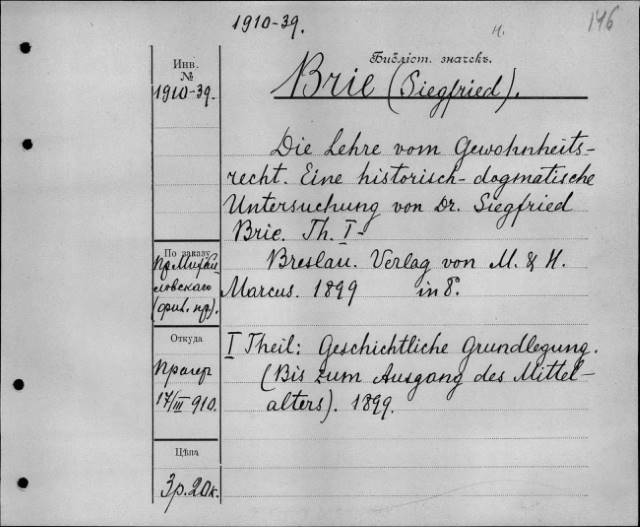 1910-39.
н.
146
Инв.
№
1910-39.
Библіот. значекъ.
Brie (Siegfried).
Die Lehre vom Gewohnheits-
recht. Eine historisch-dogmatische
Untersuchung von Dr. Siegfried
Brie. Th. I-
Breslau. Verlag von M. & H.
Marcus. 1899 in 8°.
По заказу
Пр. Михай-
ловскаго
I Theil: Geschichtliche Grundlegung.
(Bis zum Ausgang des Mittel-
alters). 1899.
Откуда
Прагер
17/III 910.
Цѣна
3 р. 20 к.